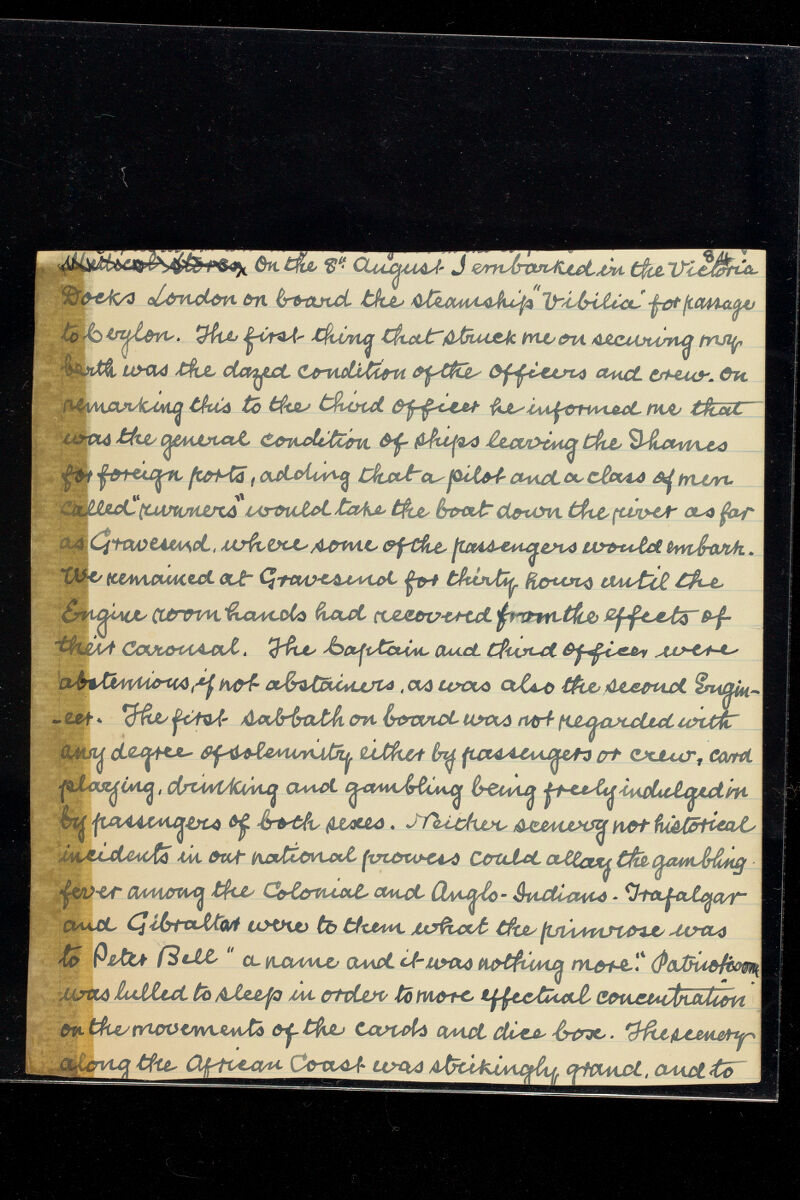 84
Medical stores, On the 8th August I embarked in the Victoria
Docks London on board the steamship "Vibilia" for passage
to Ceylon. The first thing that struck me on securing my
berth was the dazed condition of the officers and crew. On
remarking this to the third officer he informed me that
was the general condition of ships leaving the Thames
for foreign ports, adding that a pilot and a class of men
called "runners" would take the boat down the river as far
as Gravesend, where some of the passengers would embark.
We remained at Gravesend for thirty hours until the
Engine room hands had recovered from the effects of
their carousal. The Captain and third officer were
abstemious, if not abstainers, as was also the second Engin-
-eer. The first sabbath on board was not regarded with
any degree of solemnity either by passengers or crew, card
playing, drinking and gambling being freely indulged in
by passengers of both sexes. Neither scenery nor historical
incidents in our national prowess could allay the gambling
fever among the Colonial and Anglo-Indians. Trafalgar
and Gibraltar were to them what the primrose was
to Peter Bell "a name and it was nothing more." Patriotism
was lulled to sleep in order to more effectual concentration
on the movements of the cards and dice box. The scenery
along the African Coast was strikingly grand, and to